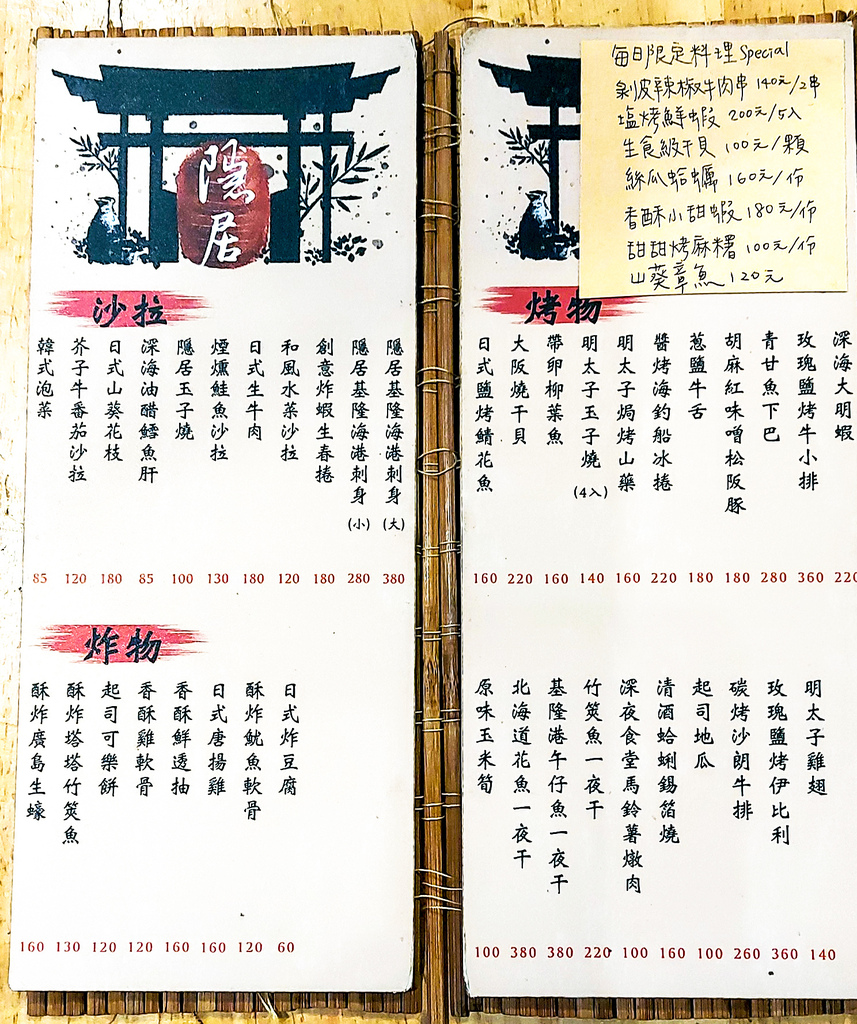 隱居
沙拉
隱居基隆海港刺身(大) 380
隱居基隆海港刺身(小) 280
創意炸蝦生春捲 180
和風水菜沙拉 120
日式生牛肉 180
煙燻鮭魚沙拉 130
隱居玉子燒 100
深海油醋鱈魚肝 85
日式山葵花枝 180
芥子牛番茄沙拉 120
韓式泡菜 85
炸物
日式炸豆腐 60
酥炸魷魚軟骨 120
日式唐揚雞 160
香酥鮮透抽 160
香酥雞軟骨 120
起司可樂餅 120
酥炸塔塔竹筴魚 130
酥炸廣島生蠔 160
每日限定料理 Special
剝皮辣椒牛肉串 140元/2串
塩烤鮮蝦 200元/5入
生食級干貝 100元/顆
絲瓜蛤蠣 160元/份
香酥小甜蝦 180元/份
甜甜烤麻糬 100元/份
山葵章魚 120元
烤物
深海大明蝦 220
玫瑰鹽烤牛小排 360
青甘魚下巴 280
胡麻紅味噌松阪豚 180
蔥鹽牛舌 180
醬烤海釣船冰捲 220
明太子焗烤山藥 160
明太子玉子燒(4入) 140
帶卵柳葉魚 160
大阪燒干貝 220
日式鹽烤鯖花魚 160
明太子雞翅 140
玫瑰鹽烤伊比利 360
碳烤沙朗牛排 260
起司地瓜 100
清酒蛤蜊錫箔燒 160
深夜食堂馬鈴薯燉肉 100
竹筴魚一夜干 220
基隆港午仔魚一夜干 380
北海道花魚一夜干 380
原味玉米筍 100